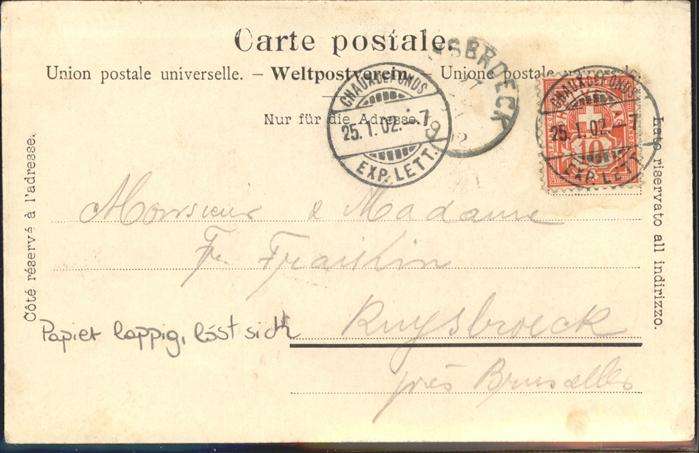 Carte postale.
Union postale universelle. – Weltpostverein. Unione postale
Nur für die Adresse.
CHAUXDEFONDS
25.1.02.-7
EXP. LETT.
SBROECK
CHAUXDEFONDS
25.1.02.-7
EXP. LETT.
10
Côté réservé à l'adresse.
Lato riservato all indirizzo.
Monsieur & Madame
Fr. Fraikin
Ruysbroeck
près Bruxelles
Papier lappig, löst sich